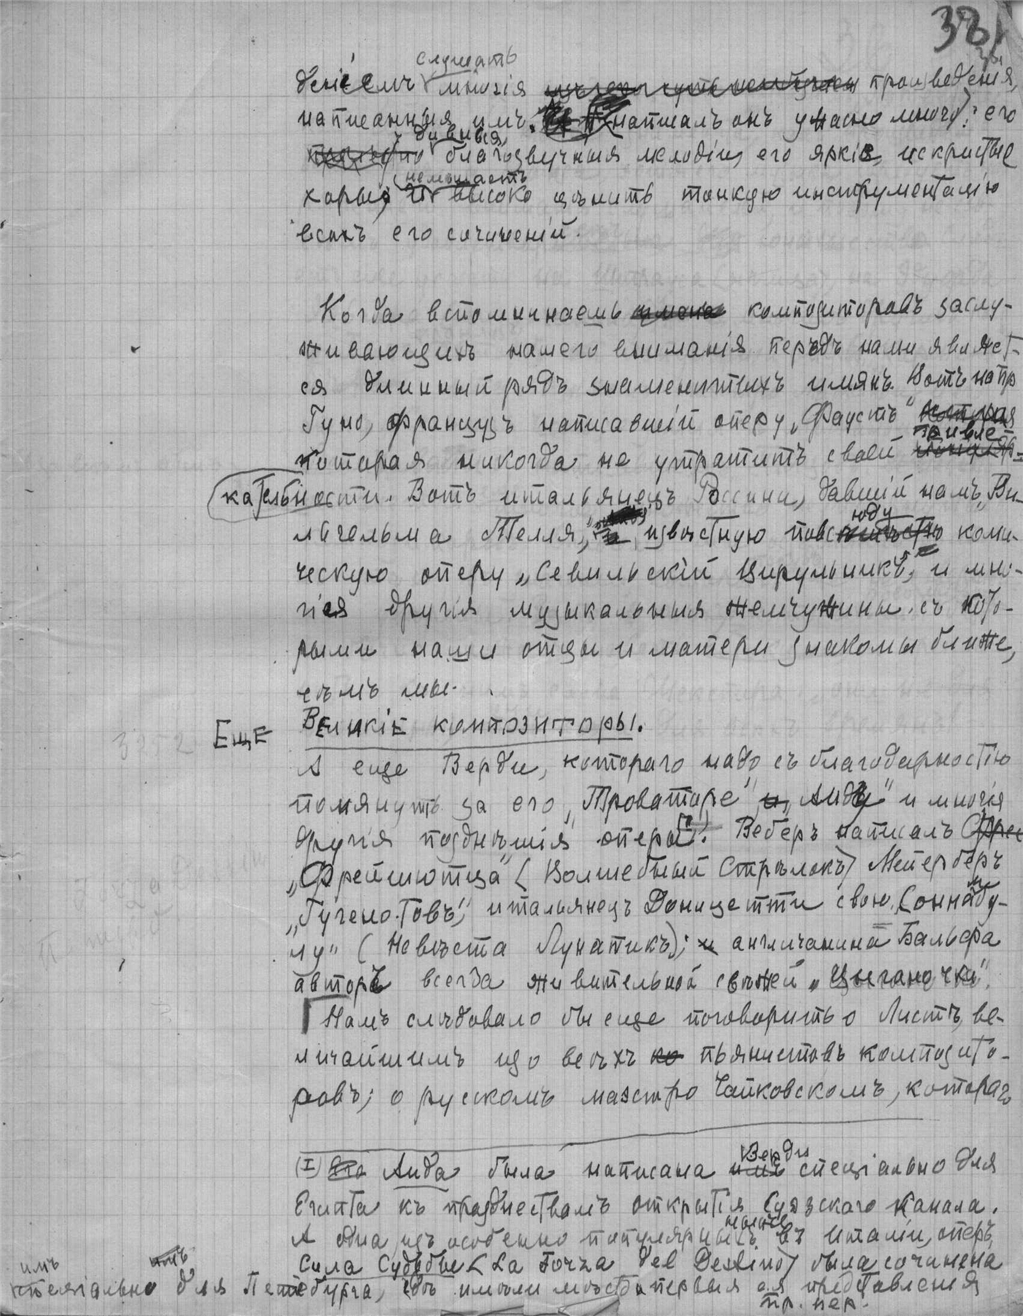 381
слушать
деніемъ многія произведенія,
написанныя имъ. написалъ онъ ужасно много; его
дивныя,
благозвучныя мелодіи, его яркіе, искристые
хоры; и высоко цѣнить тонкую инструментацію
всѣхъ его сочиненій.
Когда вспоминаемъ имена композиторовъ заслу-
живающихъ нашего вниманія передъ нами являет-
ся длинный рядъ знаменитыхъ имянъ. Вотъ напр
Гуно, французъ написавшій оперу „Фаустъ" которая
привле-
которая никогда не утратитъ своей
кательности. Вотъ итальянецъ Россини, давшій намъ „Ви
льгельма Телля", извѣстную повсюду коми-
ческую оперу „Севильскій Цирульникъ", и мно-
гія другія музыкальныя жемчужины. съ кото-
рыми наши отцы и матери знакомы ближе,
чѣмъ мы.
ЕЩЕ ВЕЛИКІЕ КОМПОЗИТОРЫ.
А еще Верди, котораго надо съ благодарностію
помянуть за его „Троваторе", и „Аиду" и многія
другія позднѣшія оперы. Веберъ написалъ
„Фрейшютца" (Волшебный Стрѣлокъ) Мейерберъ
„Гугенотовъ", итальянецъ Доницетти свою „Соннабу-
лу" (Невѣста Лунатикъ); и англичанина Бальфа
авторъ всегда живительной свѣжей „Цыганочки".
Намъ слѣдовало бы еще поговорить о Листѣ, ве-
личайшимъ изо всѣхъ пьянистовъ композито-
ровъ; о русскомъ маэстро Чайковскомъ, котораго
(I) Аида была написана Верди спеціально для
Египта къ празднествамъ открытія Суэзскаго Канала.
А одна изъ особенно популярныхъ въ Италіи оперъ
Сила Судьбы (La Forza del Destino) была сочинена
имъ
спеціально для Петебурга, гдѣ имѣли мѣсто первыя ея представленія
пр. пер.